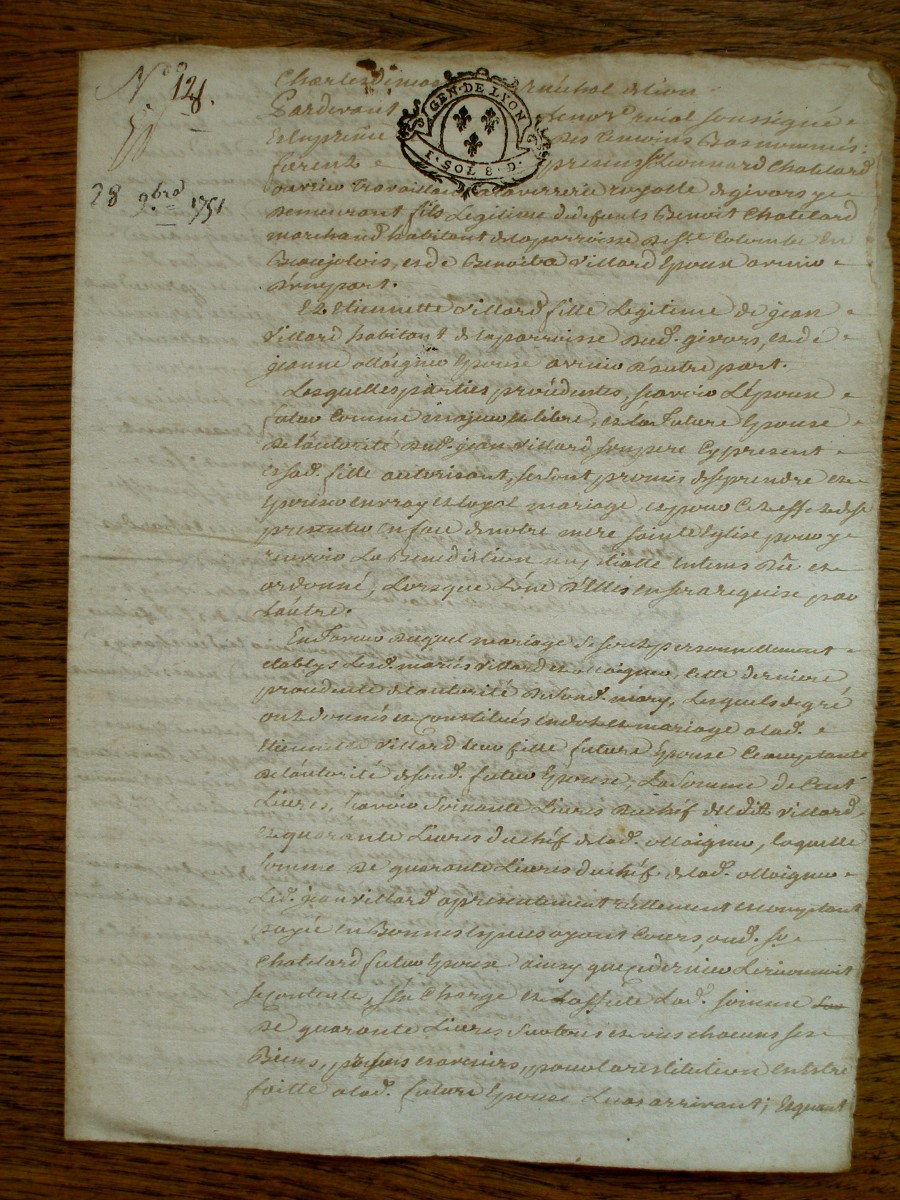 N° 121.
28 9bre 1751
GEN. DE LYON
1. SOL 8. D.
Pardevant notre roial soussigné
et en presence des temoins Basnommés
furent presens sr Leonnard Chatelard
ouvrier travaillant a la verrerie royalle de givors y
Demeurant fils Legitime de defunts Benoit Chatelard
marchand habitant de la parroisse de Ste Colombe En
Beaujolois, et de Benoitte Villard Epoux
D'une part.
Et Etiennette Villard fille Legitime de jean
Villard habitant de la parroisse dud. givors, et de
jeanne Epouse d'autre part.
Lesquelles parties procédantes, sçavoir L'Epoux
futur Comme majeur et libre, et la future Epouse
de L'autorité dud. jean Villard son pere Cy present
et sad. fille autorisant, se sont promis de se prendre et
Epouser en vray et loyal mariage et pour Cet effet de se
presenter En face de notre mere sainte Eglise pour y
recevoir La Benediction nuptialle en tems Dû et
ordonné, Lorsque L'une D'Elles en sera requise par
L'autre.
En faveur duquel mariage se sont personnellement
etablys Lesd. mariés Villard et cette derniere
procédante de L'autorité de sond. mary, Lesquels de gré
ont donnés et constitués en dot et mariage a lad.
Etiennette Villard leur fille future Epouse acceptante
de L'autorité de sond. futur Epoux, La somme de Cent
Livres, sçavoir soixante Livres du chef dudit Villard,
et quarante Livres du chef de lad. laquelle
somme de quarante Livres du chef de lad.
Led. jean Villard a presentement réellement et comptant
payée en Bonnes Especes ayant Cours, aud. sr
Chatelard futur Epoux ainsy que ce dernier Le reconnoit
s'en contente, s'en Charge et L'assure Lad. somme
de quarante Livres sur tous et uns chacuns ses
Biens, présens et avenirs, pour la restitution en etre
faitte a lad. future Epouse Le cas arrivant; Et quant